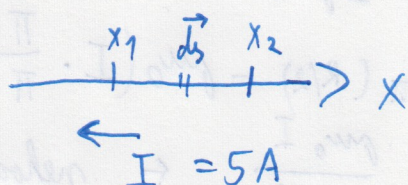 x₁ d⃗s x₂
X
I = 5A